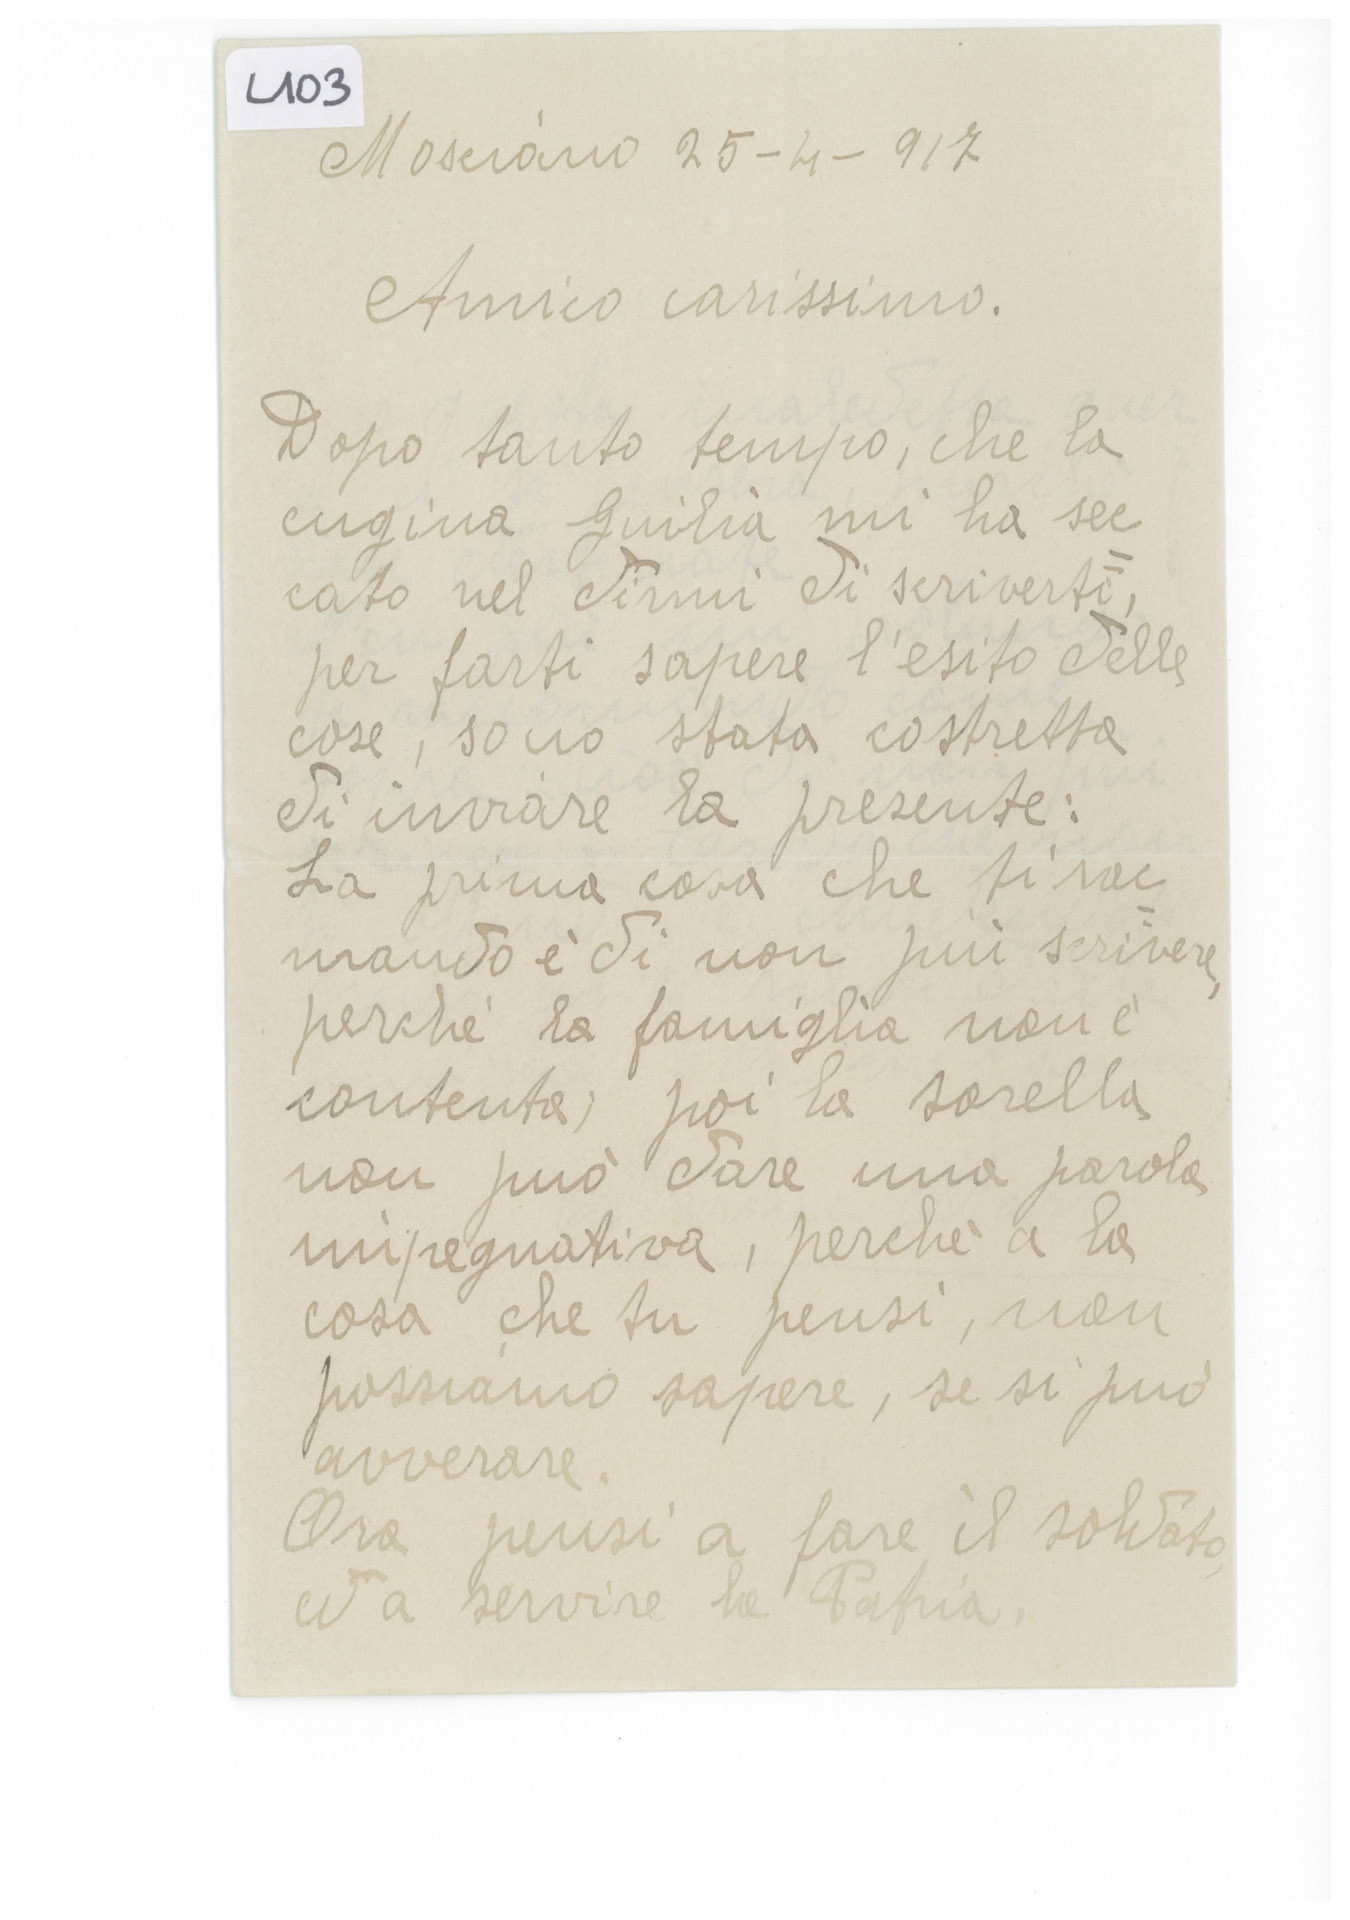 L103
Mosciano 25-4-917
Amico carissimo.
Dopo tanto tempo, che la
cugina Guilia mi ha sec
cato nel dirmi di scriverti,
per farti sapere l'esito delle
cose, sono stata costretta
di inviare la presente:
La prima cosa che ti rac
mando è di non più scrivere,
perchè la famiglia non è
contenta; poi la sorella
non può dare una parola
mipegnativa, perchè a la
cosa che tu pensi, non
possiamo sapere, se si può
avverare.
Ora pensi a fare il soldato,
ed a servire la Patria,